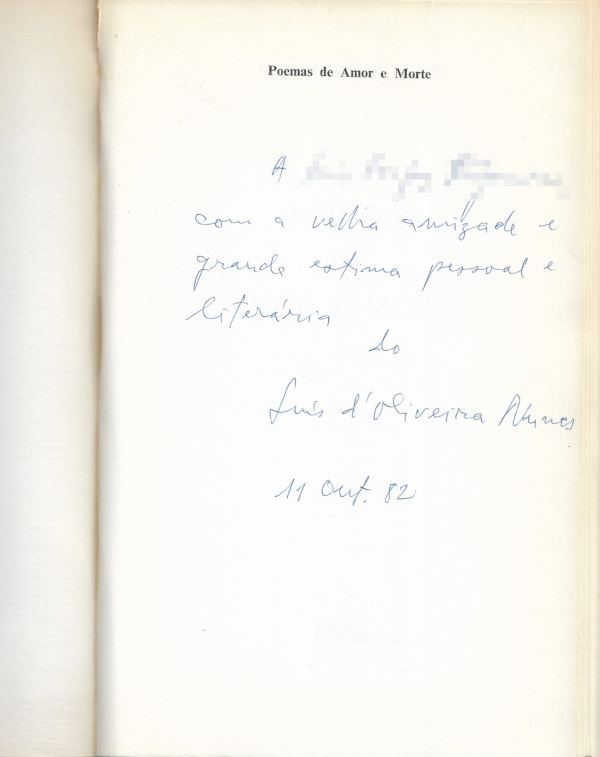 Poemas de Amor e Morte
A
com a velha amizade e
grande estima pessoal e
literária
do
Luís d'Oliveira Nunes
11 Out. 82